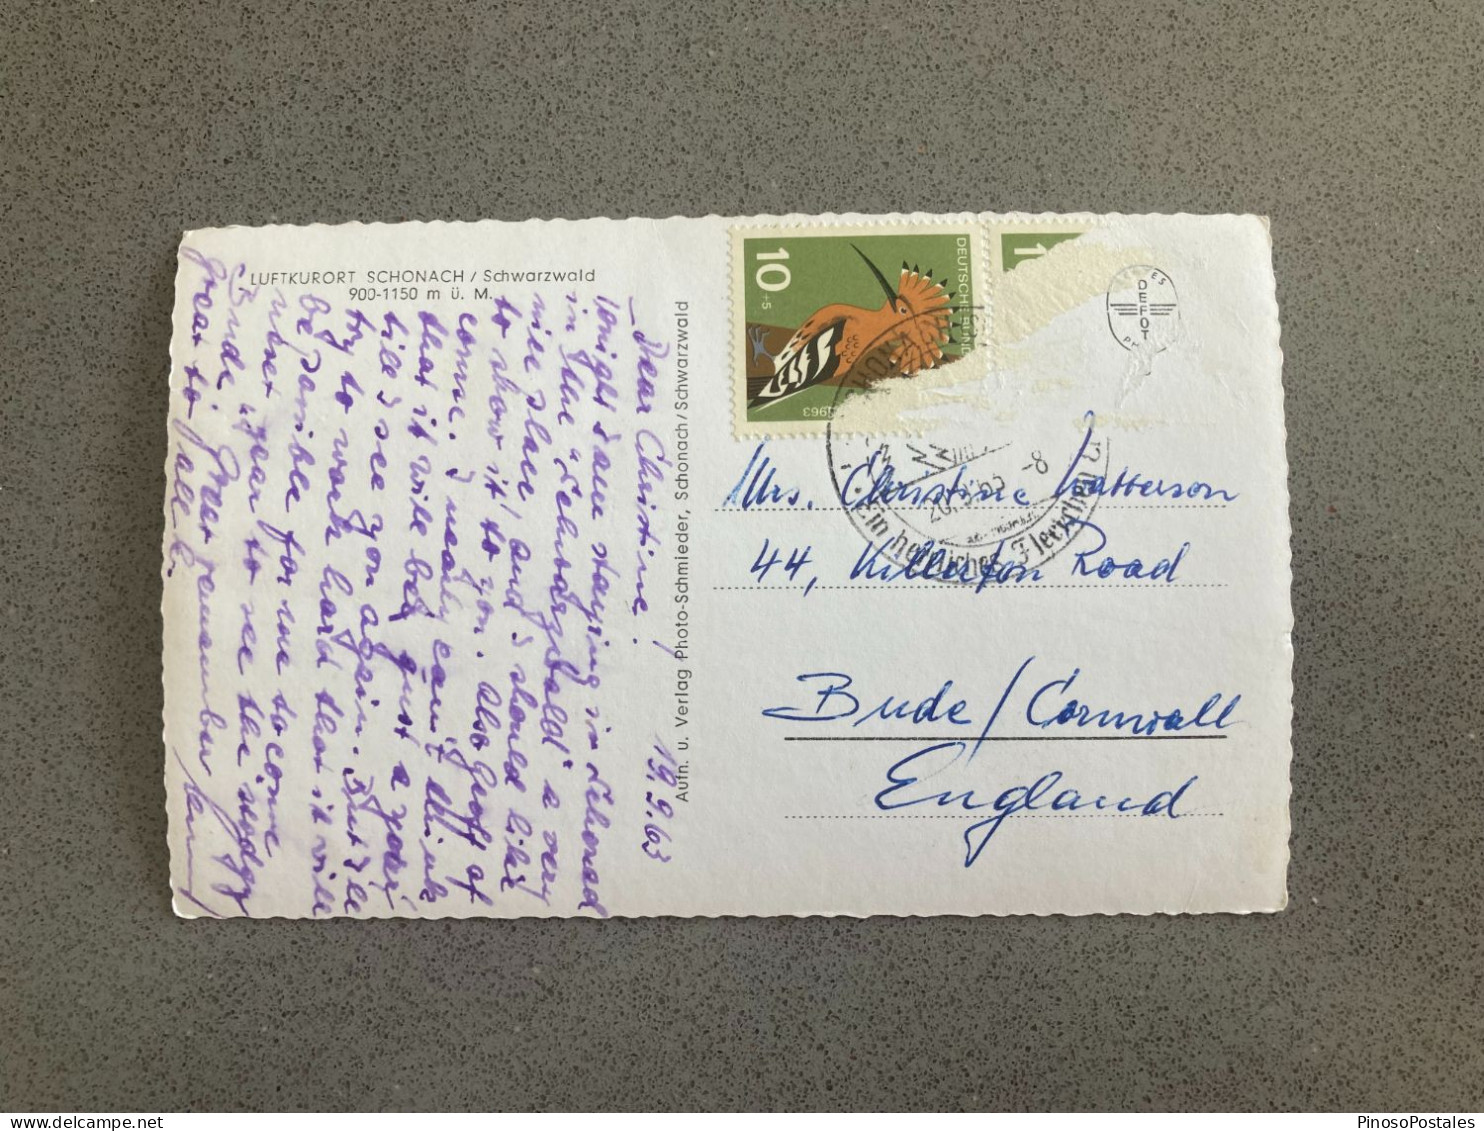 LUFTKURORT SCHONACH / Schwarzwald
900-1150 m ü. M.
19.9.63
Dear Christine!
Tonight I am staying in Schonach
in the "Schwarzwald" a very
nice place and I should like
to show it to you. Also Geoff of
course. I really can't think
that it will be just a year
till I see you again. But I'll
try to work hard that it will
be possible for me to come
next year to see the
Bude
dear to all.
Aufn. u. Verlag Photo-Schmieder, Schonach/Schwarzwald
10
+5
DEUTSCHE BUND
1963
1
DEFOT
SCHONA
20.9.63 -8
Ein herrliches
Mrs. Christine Watterson
44, Killerton Road
Bude / Cornwall
England
PinosoPostales